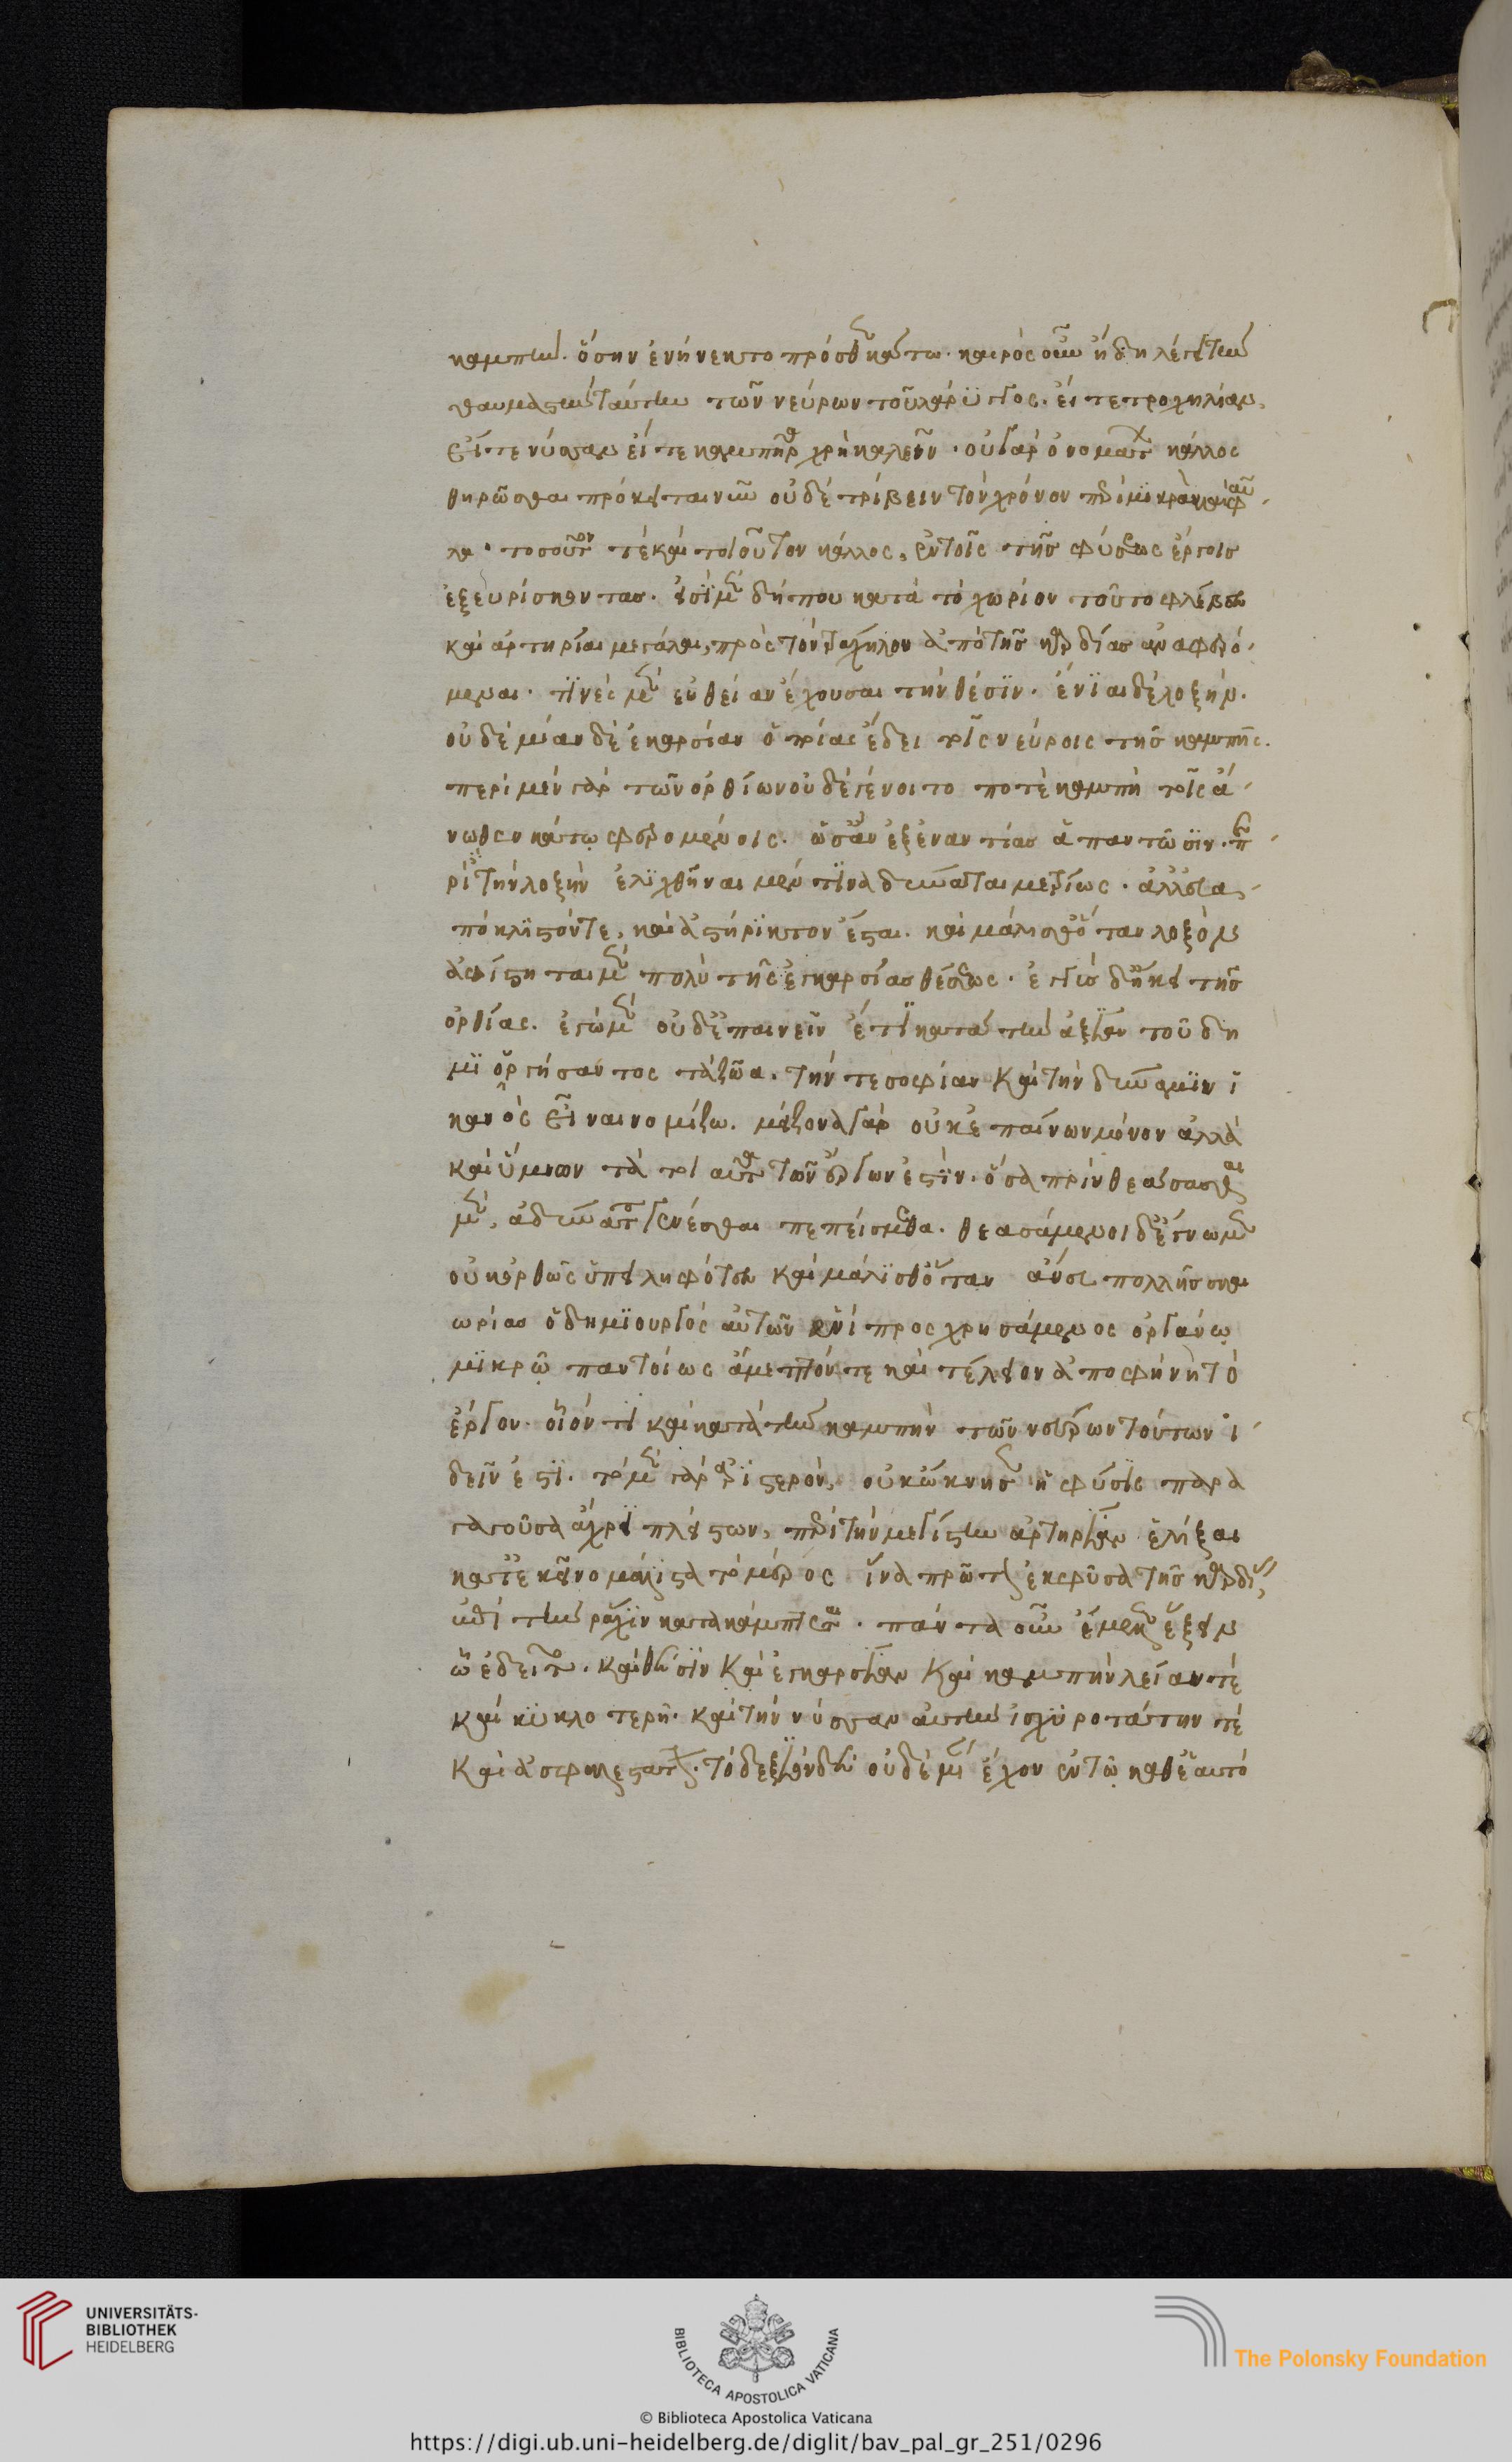 καμπὴν. ὅσην ἐνήνεκτο πρόσθεν κάτω. καιρὸς οὖν ἤδη λέγειν τὴν
θαυμαστὴν ταύτην τῶν νεύρων τοῦ λάρυγγος. εἴτε τροχηλίαν,
εἴτε νύσσαν εἴτε καμπτῆρα χρὴ καλεῖν. οὐ γὰρ ὀνομάτων κάλλος
θηρᾶσθαι πρόκειται νῦν οὐδὲ τρίβειν τὸν χρόνον περὶ μικρὰ καὶ φαῦ-
λα. τοσοῦτον τὲ καὶ τοιοῦτον κάλλος, ἐν τοῖς τῆς φύσεως ἔργοις
ἐξευρίσκοντας. εἰσὶ μὲν δήπου κατὰ τὸ χωρίον τοῦτο φλέβες
καὶ ἀρτηρίαι μεγάλαι, πρὸς τὸν τράχηλον ἀπὸ τῆς καρδίας ἀναφερό-
μεναι. τινὲς μὲν εὐθεῖαν ἔχουσαι τὴν θέσϊν. ἔνϊαι δὲ λοξήν.
οὐδὲ μίαν δὲ ἐγκαρσίαν ὁποίας ἔδει τοῖς νεύροις τῆς καμπῆς.
περὶ μὲν γὰρ τῶν ὀρθίων οὐδὲ γένοιτο ποτὲ καμπὴ τοῖς ἄ-
νωθεν κάτω φερομένοις. ὡς ἂν ἐξ ἐναντίας ἀπαντῶσϊν. πε-
ρὶ τὴν λοξὴν ἑλϊχθῆναι μέν τϊνα δυνατὸν μετρίως. ἀλλ'
ἀφίστηται μὲν πολὺ τῆς ἐγκαρσίας θέσεως. ἐγγὺς δ' ἥκει τῆς
ὀρθίας. ἐγὼ μὲν οὐδ' ἐπαινεῖν ἔτϊ κατὰ τὴν ἀξίαν τοῦ δη
μϊουργήσαντος τὰ ζῶα. τήν τε σοφίαν καὶ τὴν δύναμϊν ἱ
κανὸς εἶναι νομίζω. μείζονα γὰρ οὐκ ἐπαίνων μόνον ἀλλὰ
καὶ ὕμνων τὰ τοιαῦτα τῶν ἔργων ἐστϊν. ὅσα πρὶν θεάσασθαι
μὲν, ἀδύνατον γενέσθαι πεπείσμεθα. θεασάμενοι δὲ ἔγνωμεν
οὐκ ὀρθῶς ὑπειληφότες καὶ μάλϊσθ' ὅταν ἄνευ πολλῆς σκαι
ωρίας ὁ δημϊουργὸς αὐτῶν ἑνὶ προσχρησάμενος ὀργάνω
μϊκρῶ παντοίως ἄμεμπτόν τε καὶ τέλειον ἀποφήνη τὸ
ἔργον. οἷόν τι καὶ κατὰ τὴν καμπὴν τῶν νεύρων τούτων ἰ-
δεῖν ἐστϊ. τὸ μὲν γὰρ ἀρϊστερὸν, οὐκ ὤκνησεν ἡ φύσϊς παρα
γαγοῦσα ἄχρϊ πλείστων, περὶ τὴν μεγίστην ἀρτηρίαν ἑλίξαι
κατ' ἐκεῖνο μάλιστα τὸ μέρος ἵνα πρῶτον ἐκφῦσα τῆς καρδίας,
ἐπὶ τὴν ῥάχϊν κατακάμπτεται. πάντα οὖν ἔμελλεν ἕξειν
ὧν ἐδεῖτο. καὶ θέσϊν καὶ ἐγκαρσίαν καὶ καμπὴν λείαν τὲ
καὶ κϋκλοτερῆ. καὶ τὴν νύσσαν αὐτὴν ἰσχϋροτάτην τὲ
καὶ ἀσφαλεστάτην. τὸ δὲ δεξιὸν οὐδὲν ἔχον ἐν τῶ καθ' ἑαυτὸ
UNIVERSITÄTS-
BIBLIOTHEK
HEIDELBERG
BIBLIOTECA APOSTOLICA VATICANA
The Polonsky Foundation
© Biblioteca Apostolica Vaticana
https://digi.ub.uni-heidelberg.de/diglit/bav_pal_gr_251/0296